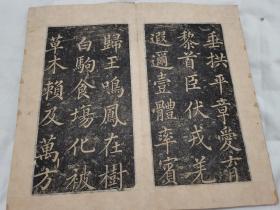 垂拱平章愛育
黎首臣伏戎羌
遐邇壹體率賓
歸王鳴鳳在樹
白駒食場化被
草木賴及萬方